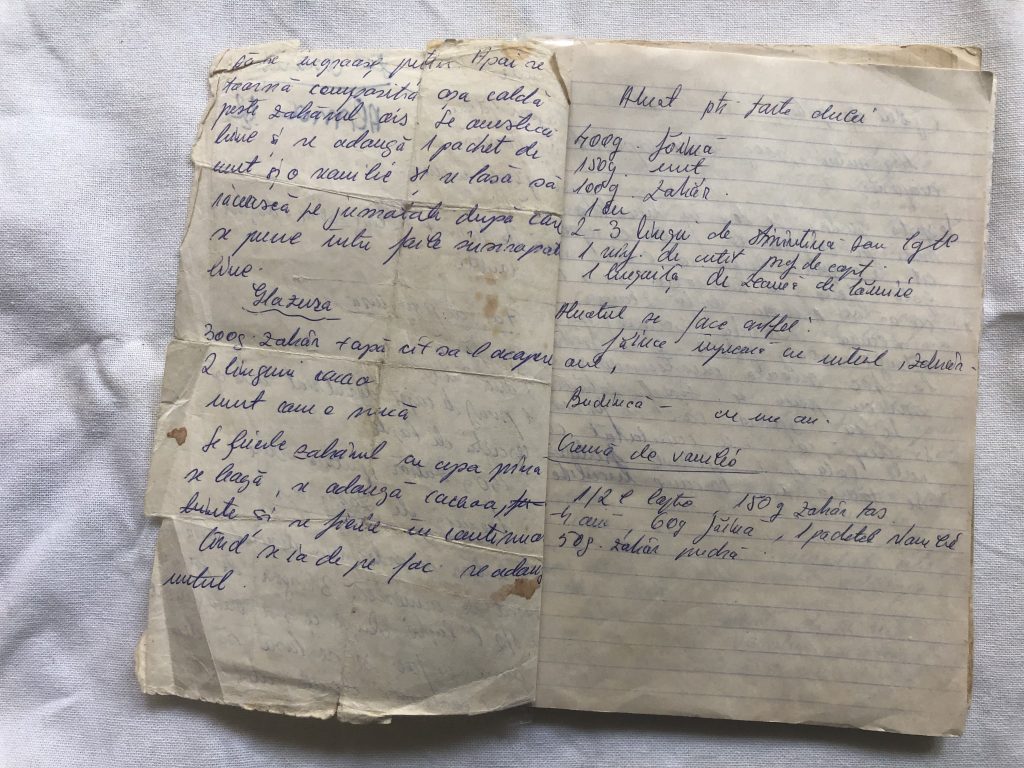 să se îngroașe puțin Apoi se
toarnă compoziția asa caldă
peste zahărul ars. Se amestecă
bine și se adaugă 1 pachet de
unt și o vanilie și se lasă să
răcească pe jumătate după care
se pune intre foile insiropate
bine.
Glazura
300g. zahăr + apă cît sa-l acopere
2 linguri cacao
unt cam o nucă
Se fierbe zahărul cu apa pînă
se leagă, se adaugă cacaoa,
și se fierbe in continuare
Cînd se ia de pe foc se adaugă
untul.
Aluat ptr tarte dulci
400g. făină
150g. unt
100g. zahăr.
1 ou
2-3 linguri de smîntînă sau lapte
1 vîrf. de cutit praf de copt.
1 linguriță de zeamă de lămîie
Aluatul se face astfel:
făina cu untul, zahăr-
Budincă - cu un ou.
Cremă de vanilie
1/2 l lapte, 150 g zahăr tos.
4 ouă, 60g făină, 1 pachetel Vanilie
50g. zahăr pudră.